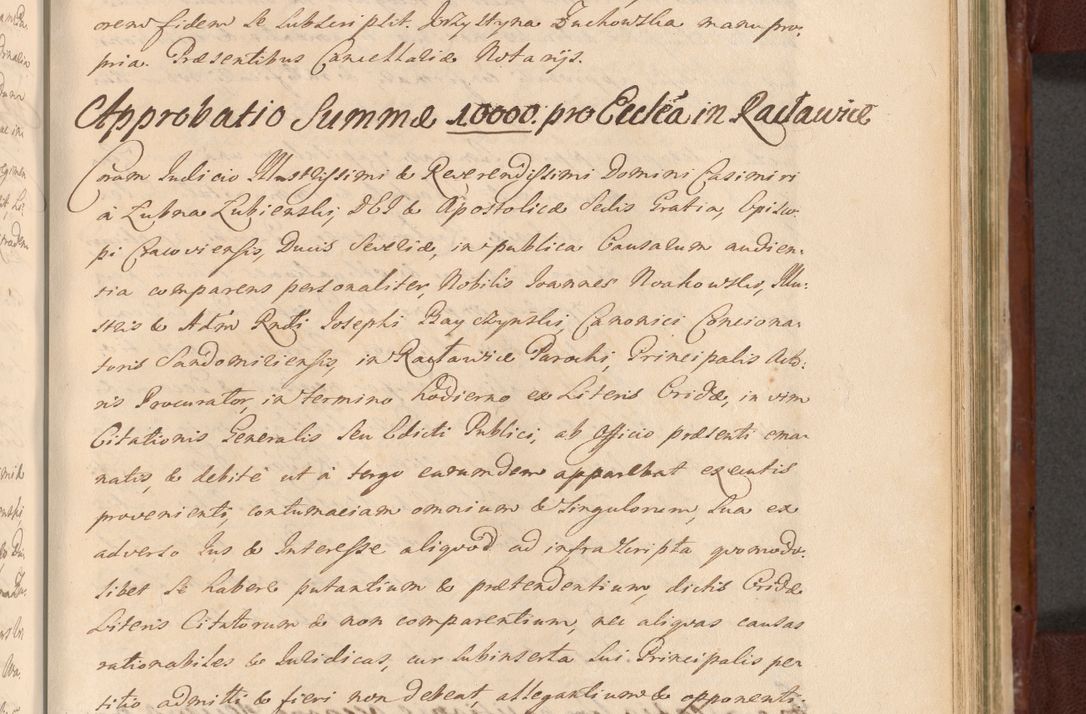 orem fidem se subscripsit. Krzystyna Duchowska manu pro-
pria. Præsentibus Cancellariæ Notarijs.
Approbatio Summæ 10000. pro Ecclã in Racławice
Coram Iudicio Illustrissimi & Reverendissimi Domini Casimiri
à Łubna Łubienski, DEI & Apostolicæ Sedis Gratia, Episco-
pi Cracoviensis, Ducis Severiæ, in publica Causarum audien-
tia comparens personaliter, Nobilis Ioannes Noakowski, Illu-
stris & Adm Rndi Iosephi Bayczynski, Canonici Conciona-
toris Sandomiriensis, in Racławice Parochi, Principalis Acto-
ris Procurator, in termino hodierno ex Literis Cridæ, in vim
Citationis Generalis seu Edicti Publici, ab Officio præsenti ema-
natis, & debite ut à tergo earumdem apparebat executis
provenienti, contumaciam omnium & singulorum, sua ex
adverso Ius & Interesse aliquod ad infrascripta quomodo-
libet se habere putantium & prætendentium, dictis Cridæ
Literis Citatorum & non comparentium, nec aliquas causas
rationabiles & Iuridicas, cur subinserta sui Principalis pe-
titio admitti & fieri non debeat, allegantium & opponenti-